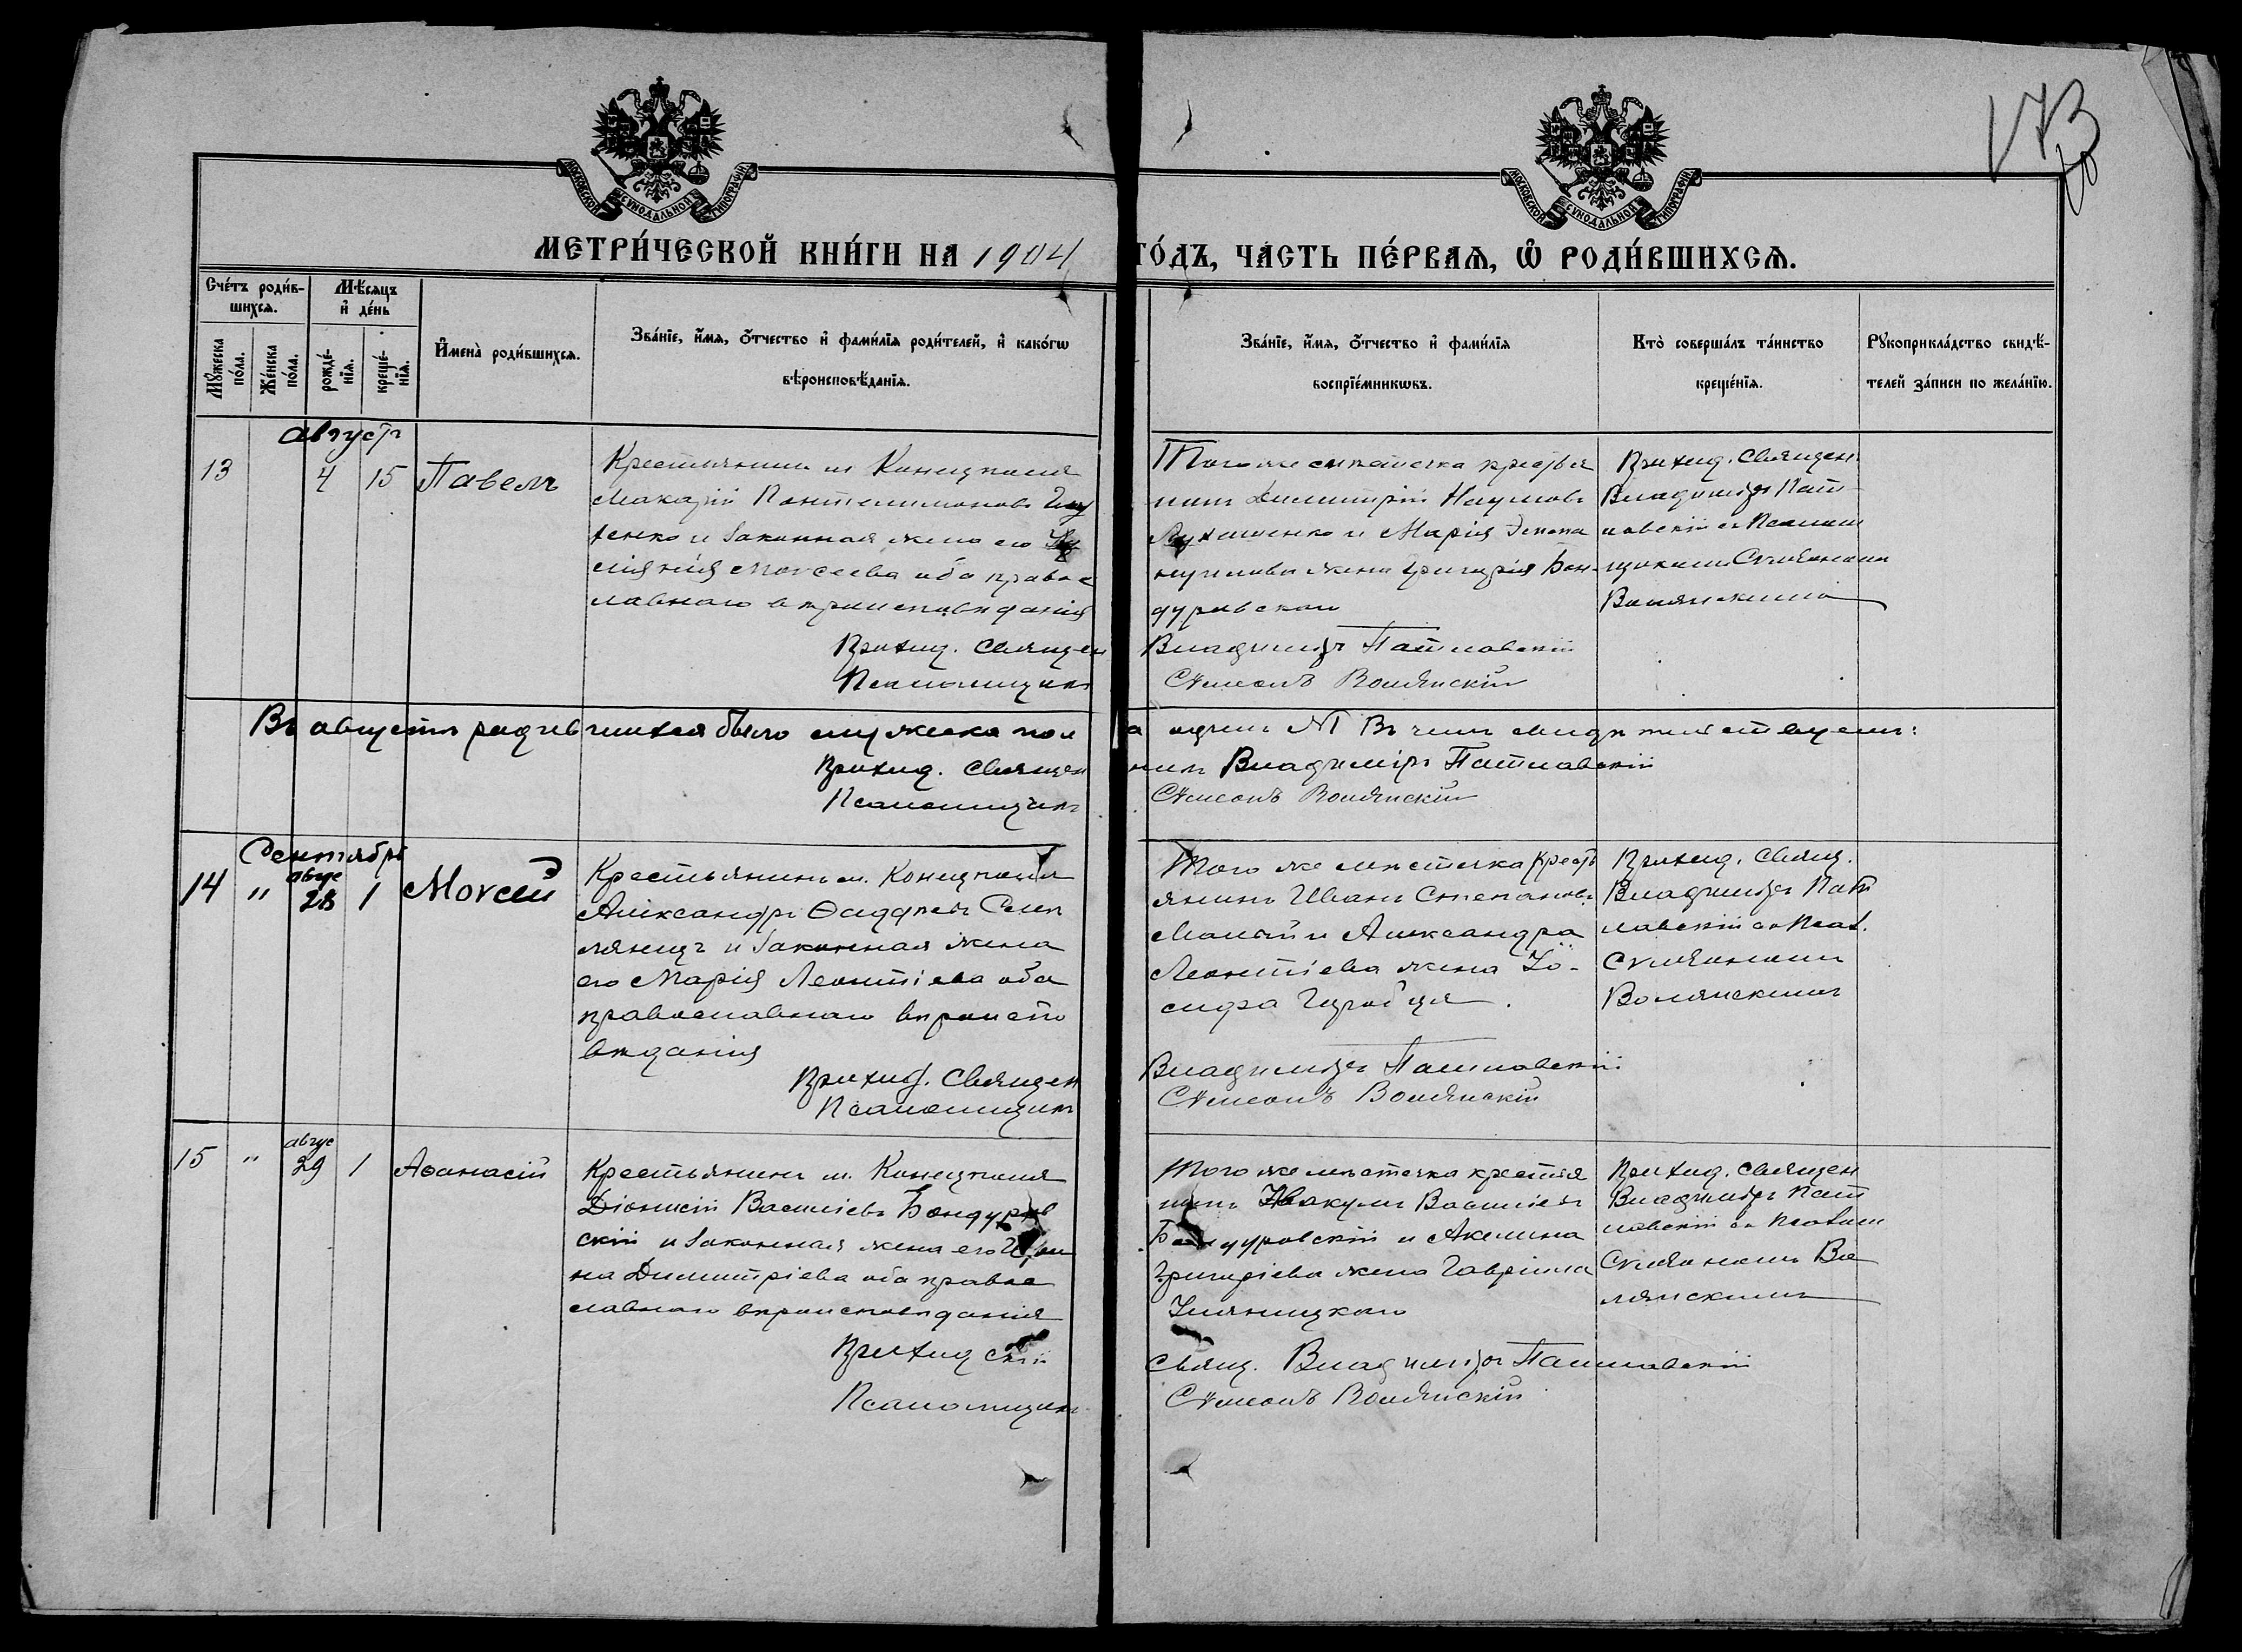 173
МОСКОВСКОЙ СУНОДАЛЬНОЙ ТИПОГРАФІИ
МОСКОВСКОЙ СУНОДАЛЬНОЙ ТИПОГРАФІИ
МЕТРИ́ЧЕСКОЙ КНИ́ГИ НА 1904 ГО́ДЪ, ЧА́СТЬ ПЕ́РВАЯ, Ѡ҆ РОДИ́ВШИХСЯ.
Сче́тъ роди́в-
шихся.
Мѣ́сяцъ
и҆ де́нь
Мꙋ́жеска
по́ла.
Же́нска
по́ла.
рожде́-
нїя.
креще́-
нїя.
И҆мена̀ роди́вшихся.
Зва́нїе, и҆́мя, о҆́тчество и҆ фами́лїя роди́телей, и҆ како́гѡ
вѣроисповѣ́данїя.
Зва́нїе, и҆́мя, о҆́тчество и҆ фами́лїя
воспрїе́мникѡвъ.
Кто̀ соверша́лъ та́инство
креще́нїя.
Рꙋкоприкла́дство свидѣ́-
телей за́писи по жела́нїю.
Августъ
13 4 15 Павелъ
Крестьянинъ м. Конецполя
Макарій Пантелимоновъ
и законная жена его
Моѵсеева оба правос
лавнаго вѣроисповѣданія
Приход. Священ
Псаломщикъ
Того же мѣстечка крестья
нинъ Димитрій Наумовъ
и Марія
жена Григорія Бон-
дуровскаго
Владиміръ Патлавскій
Сѵмеонъ Волянскій
Приход. Священ.
Владиміръ Пат
лавскій съ Псалом
щикомъ Сѵмеономъ
Волянскимъ
Въ августѣ родившихся было мужеска пола одинъ №1 Въ чемъ свидѣтельствуемъ:
Приход. Священникъ Владиміръ Патлавскій
Псаломщикъ Сѵмеонъ Волянскій
Сентябрь
14 " авгус 28 1 Моѵсей
Крестьянинъ м. Конецполя
Александръ Ѳаддеевъ
и законная жена
его Марія Леонтіева оба
православнаго вѣроиспо
вѣданія
Приход. Священ
Псаломщикъ
Того же мѣстечка крест
янинъ Иванъ Степановъ
и Александра
Леонтіева жена Іо-
сифа
Владиміръ Патлавскій
Сѵмеонъ Волянскій
Приход. Свящ.
Владиміръ Пат
лавскій съ Псал.
Сѵмеономъ
Волянскимъ
15 " авгус 29 1 Аѳанасій
Крестьянинъ м. Конецполя
Діонисій Василіевъ Бондуров
скій и законная жена его Ири
на Димитріева оба правос
лавнаго вѣроисповѣданія
Приход
Псаломщикъ
Того же мѣстечка крестья
нинъ Іаакумъ Василіевъ
Бондуровскій и Акилина
Григоріева жена Гавріила
Свящ. Владиміръ Патлавскій
Сѵмеонъ Волянскій
Приход. Священ
Владиміръ Пат
лавскій съ Псалом
Сѵмеономъ Во
лянскимъ